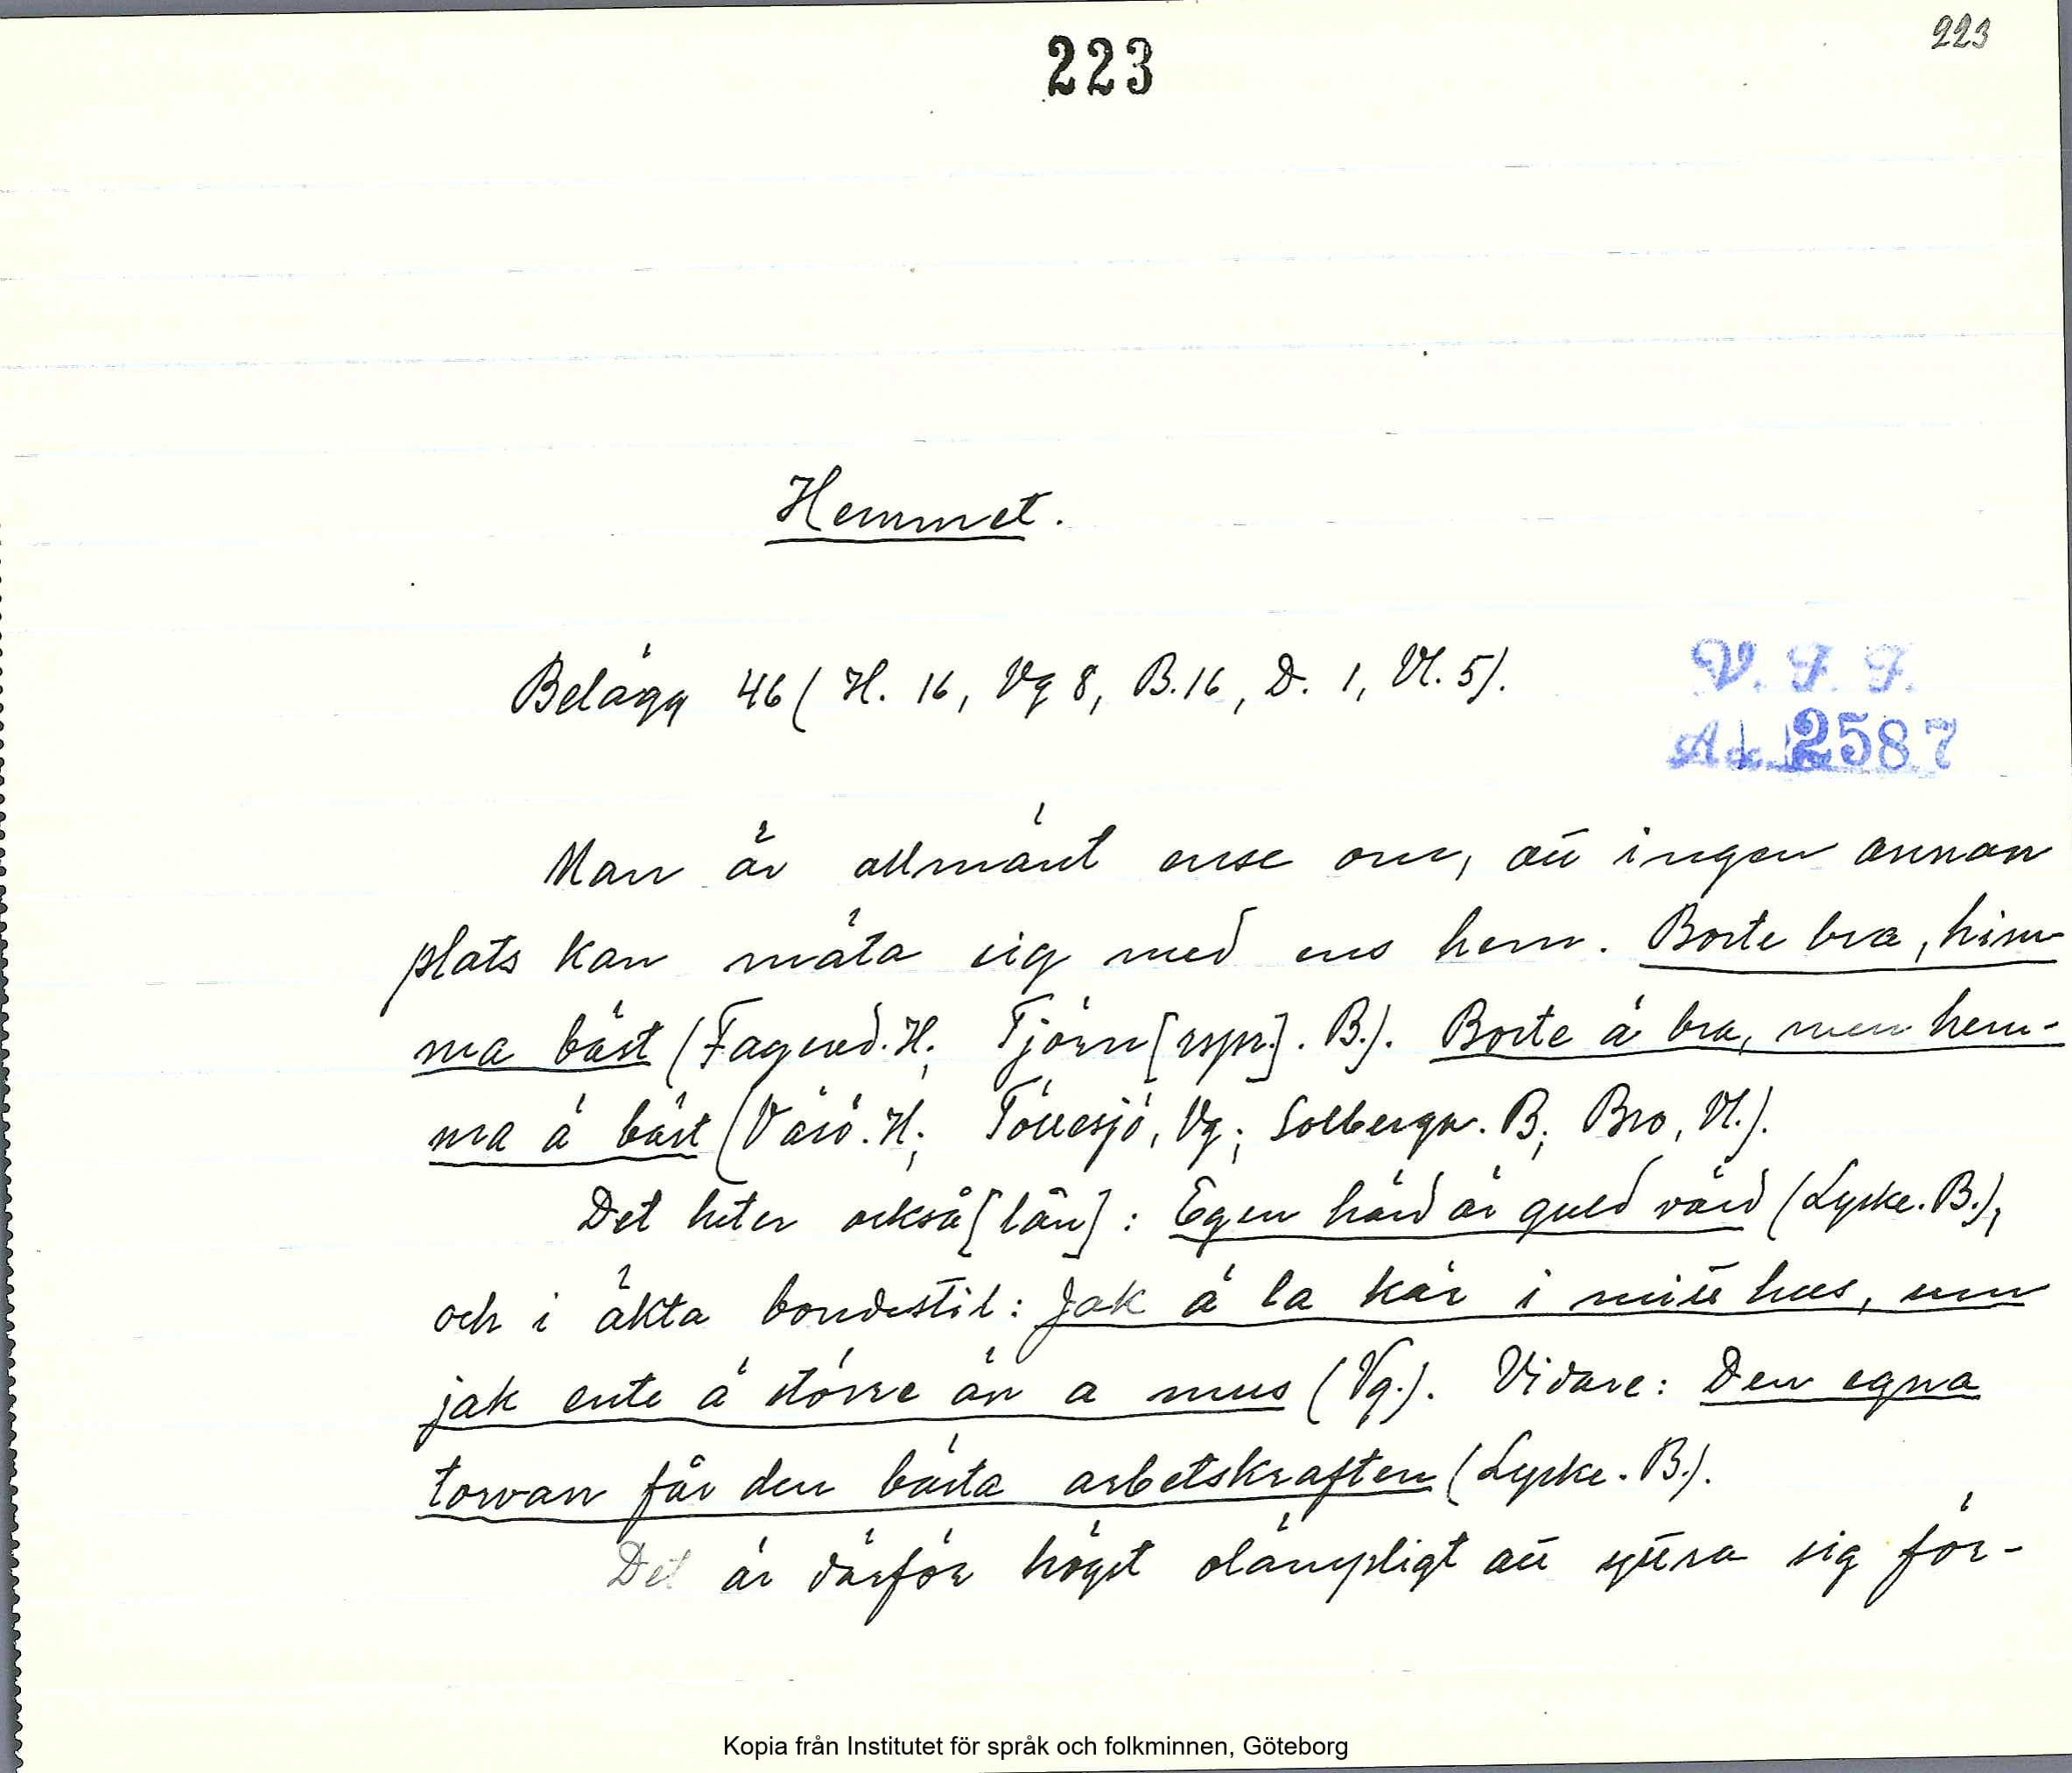 223
223
Hemmet.
Belägg 46 (H. 16, Vg 8, B. 16, D. 1, Vl. 5).
V. F. F.
Acc. 2587
Man är allmänt ense om, att ingen annan
plats kan mäta sig med ens hem. Borte bra, him-
ma bäst (Fagered. H; Tjörn [rspr.]. B.). Borte ä bra, men hem-
ma ä bäst (Värö. H; Töllesjö, Vg; Solberga. B; Bro, Vl.).
Det heter också [lån]: Egen härd är guld värd (Lycke. B.),
och i äkta bondestil: Jak ä la kär i mitt hus, um
jak ente ä större än a mus (Vg.). Vidare: Den egna
torvan får den bästa arbetskraften (Lycke. B.).
Det är därför högst olämpligt att yttra sig för-
Kopia från Institutet för språk och folkminnen, Göteborg